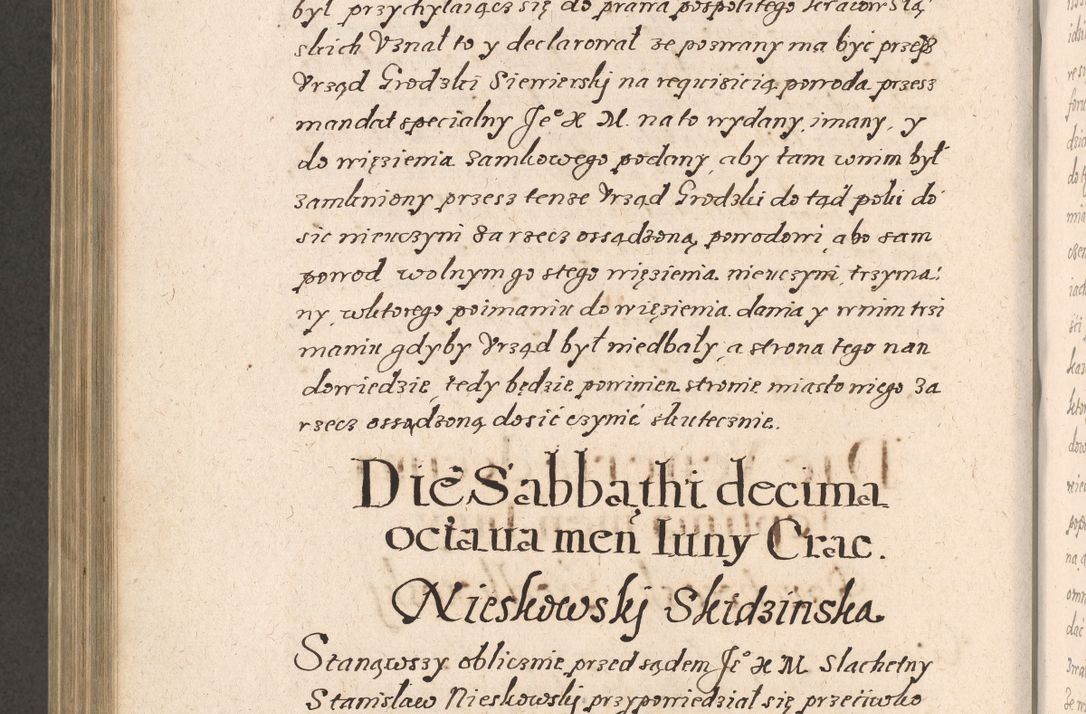 był przychylaiącz się do prawa pospolitego kraiow Slą
skich Vznał to y declarował że pozwany ma być przesz
Vrząd Grodzki Siewierskj na requisicią powoda przesz
mandat specialny Je° X M. na to wydany, imany, y
do więzienia zamkowego podany, aby tam w nim był
zamkniony przesz tenże Vrząd Grodzki do tąd poki do
sic nieuczyni za rzecz ossądzoną, powodowi, abo sam
powod wolnym go s tego więzienia nieuczyni, trzyma:
ny, w ktorego poimaniu do więzienia dania y w nim trzi
maniu gdyby Vrząd był niedbały, a strona tego nan
dowiedzie, tedy będzie powinien stronie miasto niego za
rzecz ossądzoną dosić czynić skutecznie.
Die Sabbathi decima
octaua men Iuny Crac.
Nieskowskj Skidzinska
Stanąwszy oblicznie przed sądem Je° X M Slachetny
Stanisław Nieskowskj przypowiedział się przeciwko